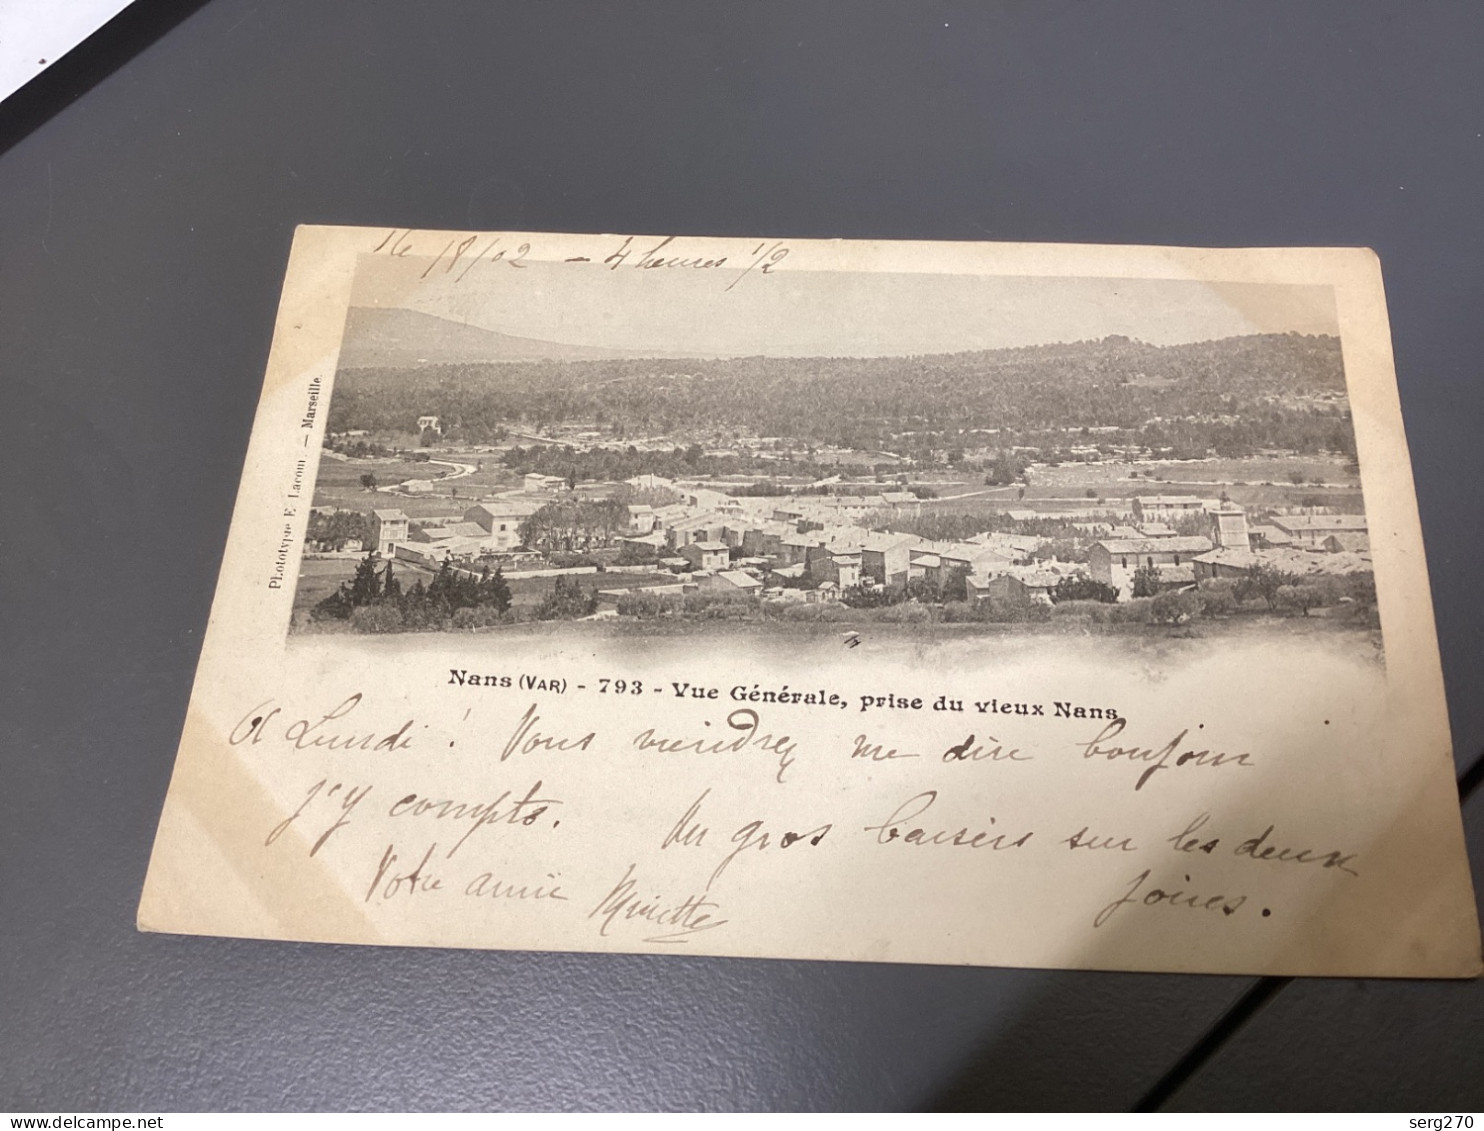 18/02 - 4 heures 1/2
Phototypie E. Lacour — Marseille
Nans (VAR) - 793 - Vue Générale, prise du vieux Nans
A Lundi ! Vous viendrez me dire bonjour
j'y compte. Un gros baisers sur les deux
joues.
Votre amie Minette
delcampe.net
serg270